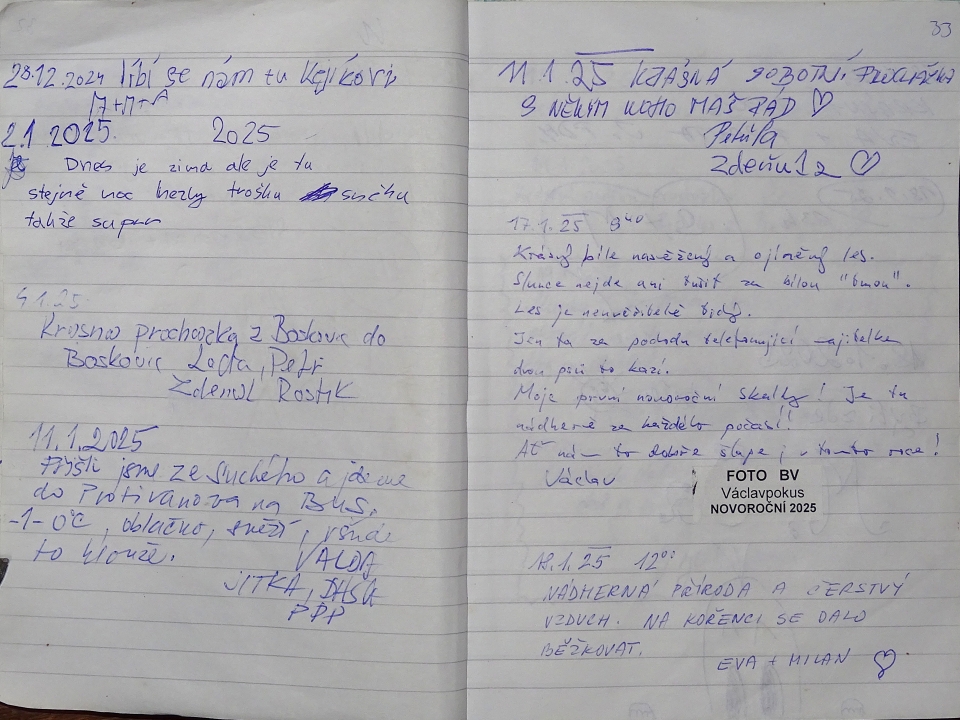 28.12.2024 líbí se nám tu Kejíkovi
2.1.2025. 2025
Dnes je zima ale je tu
stejně moc hezky trošku sucha
takže super
4.1.25
Krasna prochazka z Boskovic do
Boskovic Petr
Zdenol Rostik
11.1.2025
Přišli jsme ze Suchého a jdeme
do Protivanova na BUS.
-1-0°C, oblačno, sněží, všude
to klouže. VALDA
JITKA,
PPP
33
11.1.25 KRÁSNÁ SOBOTNÍ PROCHÁZKA
S NĚKÝM KOHO MÁŠ RÁD ♡
Petula
♡
17.1.25 9⁴⁰
Krásný bíle zasněžený a ojíněný les.
Slunce nejde ani tušit za bílou "tmou".
Les je neuvěřitelně tichý.
Jen ta za pochodu telefonující majitelka
dvou psů to kazí.
Moje první novoroční Skalky! Je tu
nádherně za každého počasí!!
Ať nám to dobře šlape i v tomto roce!
Václav
FOTO BV
Václavpokus
NOVOROČNÍ 2025
18.1.25 12⁰⁰
NÁDHERNÁ PŘÍRODA A ČERSTVÝ
VZDUCH. NA KOŘENCI SE DALO
BĚŽKOVAT.
EVA + MILAN ♡